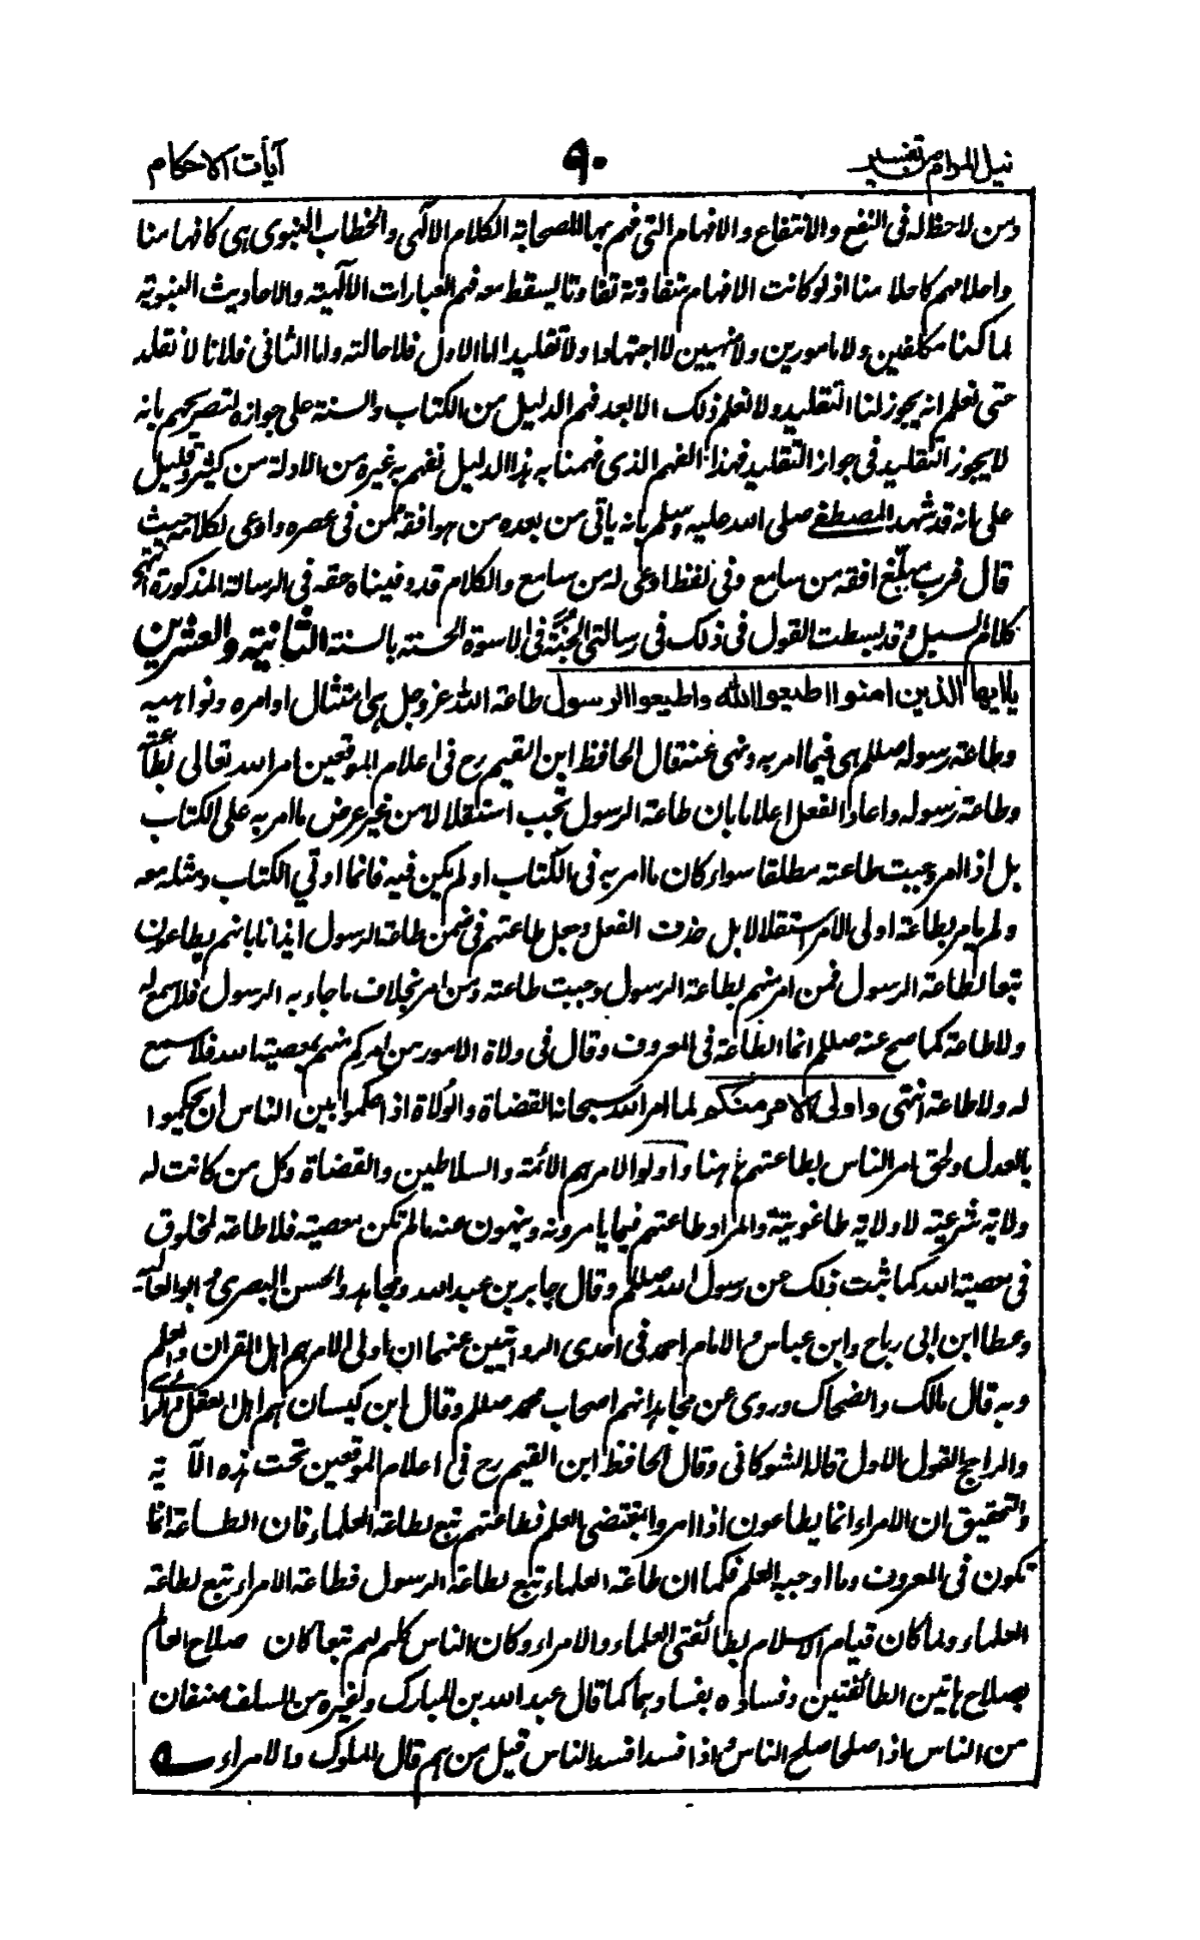 نيل المرام من تفسير
٩٠
آيات الاحكام
ومن لاحظ له فى النفع والانتفاع والافهام التى فهم بها الصحابة الكلام الآلهى والخطاب النبوى هى كافهامنا
واحلامهم كاحلامنا اذ لو كانت الافهام متفاوتة تفاوتا يسقط معه فهم العبارات الآلهية والاحاديث النبوية
لما كنا مكلفين ولا مامورين ولا منهيين لا اجتهادا ولا تقليدا اما الاول فلاحالته واما الثانى فلانا لا نقلد
حتى نعلم انه يجوز لنا التقليد ولا نعلم ذلك الا بعد فهم الدليل من الكتاب والسنة على جوازه لتصريحهم بانه
لا يجوز التقليد فى جواز التقليد فهذا الفهم الذى فهمنا به هذا الدليل نفهم به غيره من الادلة من كثير وقليل
على انه قد شهد المصطفى صلى الله عليه وسلم بانه ياتى من بعده من هو افقه ممن فى عصره واوعى لكلامه حيث
قال فرب مبلغ افقه من سامع وفى لفظ اوعى له من سامع والكلام قد وفيناه حقه فى الرسالة المذكورة انتهى
كلام السبل وقد بسطت القول فى ذلك فى رسالتى الجنة فى الاسوة الحسنة بالسنة الثانية والعشرين
يا ايها الذين امنوا اطيعوا الله واطيعوا الرسول طاعة الله عز وجل هى امتثال اوامره ونواهيه
وطاعة رسوله صللم هى فيما امر به ونهى عنه قال الحافظ ابن القيم رح فى اعلام الموقعين امر الله تعالى بطاعته
وطاعة رسوله واعاد الفعل اعلاما بان طاعة الرسول تجب استقلالا من غير عرض ما امر به على الكتاب
بل اذا امر وجبت طاعته مطلقا سواء كان ما امر به فى الكتاب او لم يكن فيه فانما اوتي الكتاب ومثله معه
ولم يامر بطاعة اولى الامر استقلالا بل حذف الفعل وجعل طاعتهم فى ضمن طاعة الرسول ايذانا بانهم يطاعون
تبعا لطاعة الرسول فمن امر منهم بطاعة الرسول وجبت طاعته ومن امر بخلاف ما جاء به الرسول فلا سمع له
ولا طاعة كما صح عنه صللم انما الطاعة فى المعروف وقال فى ولاة الامور من امركم منهم بمعصية الله فلا سمع
له ولا طاعة انتهى واولى الامر منكم لما امر الله سبحانه القضاة والولاة اذا حكموا بين الناس ان يحكموا
بالعدل والحق امر الناس بطاعتهم ههنا واولوا الامر هم الائمة والسلاطين والقضاة وكل من كانت له
ولاية شرعية لا ولاية طاغوتية والمراد طاعتهم فيما يامرونه وينهون عنه مالم تكن معصية فلا طاعة لمخلوق
فى معصية الله كما ثبت ذلك عن رسول الله صللم وقال جابر بن عبد الله ومجاهد والحسن البصرى وابو العالية
وعطا ابن ابى رباح وابن عباس والامام احمد فى احدى الروايتين عنهما ان اولى الامر هم اهل القران والعلم
وبه قال مالك والضحاك وروى عن مجاهد انهم اصحاب محمد صللم وقال ابن كيسان هم اهل العقل والراى
والراجح القول الاول قاله الشوكانى وقال الحافظ ابن القيم رح فى اعلام الموقعين تحت هذه الآية
والتحقيق ان الامراء انما يطاعون اذا امروا بمقتضى العلم فطاعتهم تبع لطاعة العلماء فان الطاعة انما
تكون فى المعروف وما اوجبه العلم فكما ان طاعة العلماء تبع لطاعة الرسول فطاعة الامراء تبع لطاعة
العلماء ولما كان قيام الاسلام بطائفتى العلماء والامراء وكان الناس كلهم لهم تبعا كان صلاح العالم
بصلاح هاتين الطائفتين وفساده بفسادهما كما قال عبد الله بن المبارك وغيره من السلف صنفان
من الناس اذا صلحا صلح الناس واذا فسدا فسد الناس قيل من هم قال الملوك والامراء